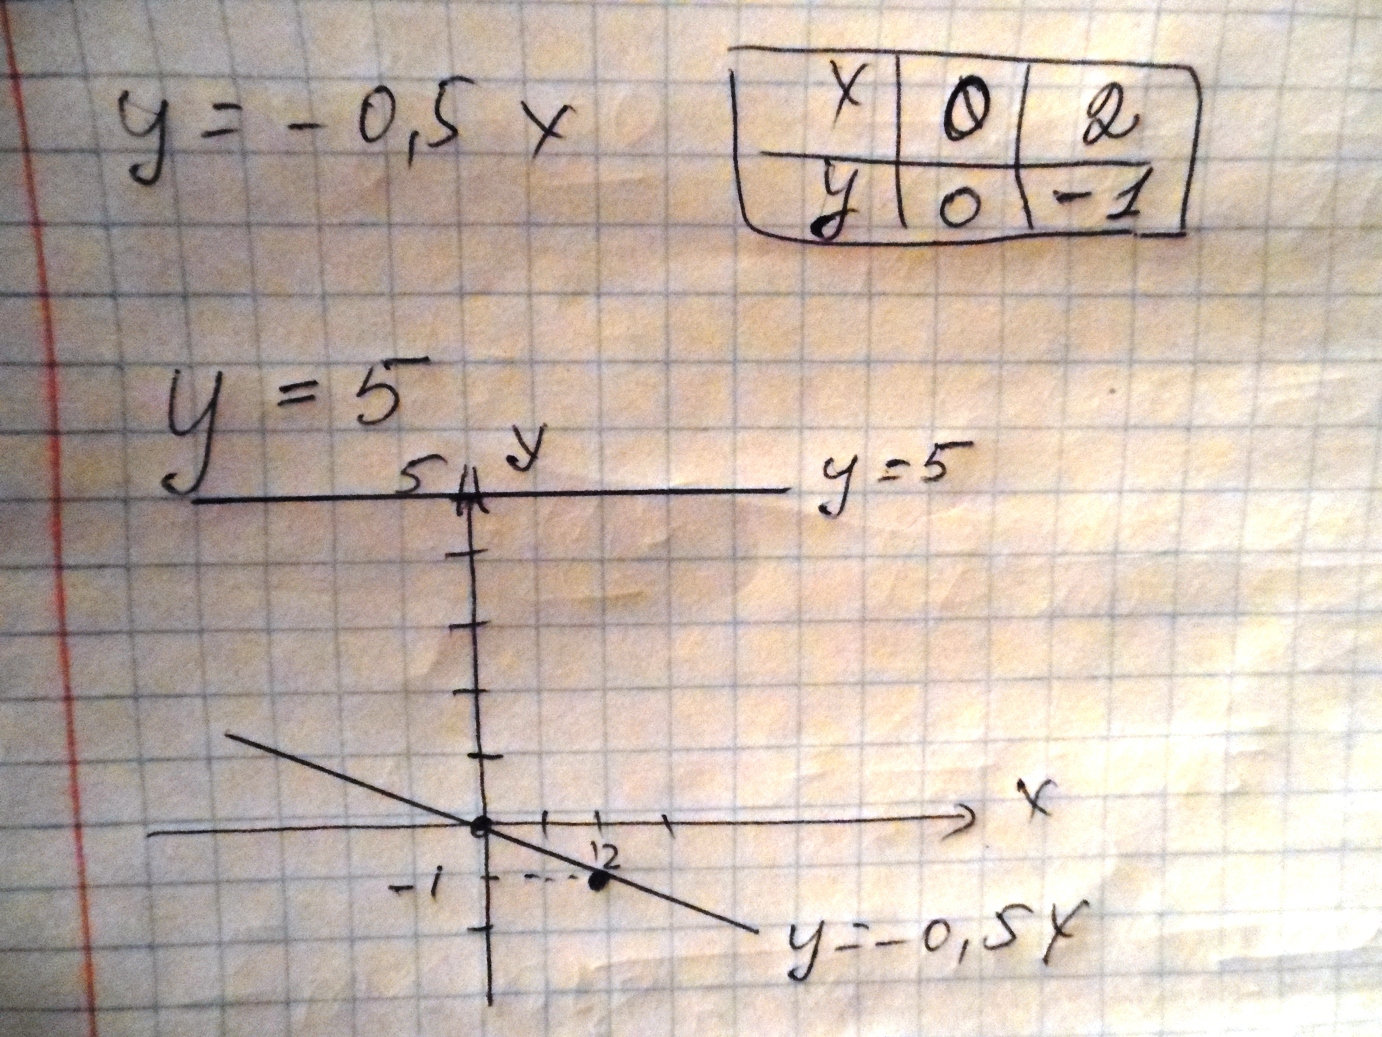 y = - 0,5 x
x 0 2
y 0 -1
y = 5
5 y y = 5
x
2
-1
y = -0,5x